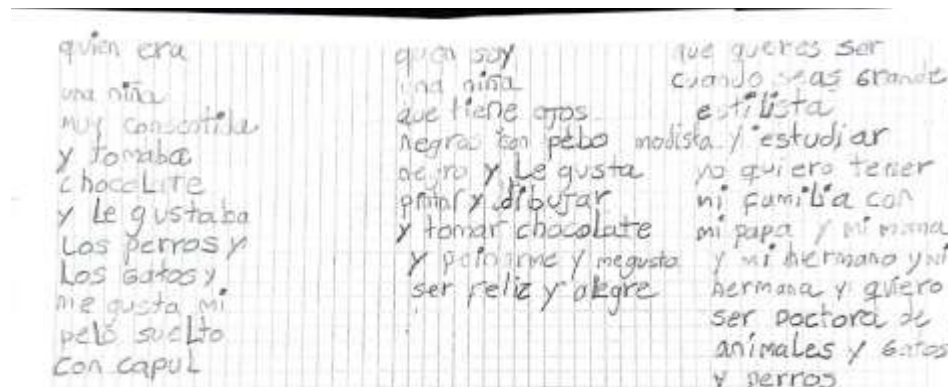 quien era
una niña
muy consentida
y tomaba
chocoLate
y Le gustaba
Los perros y
Los Gatos y
me gusta mi
pelo sueLto
con capuL
quien soy
una niña
que tiene ojos
negros con pelo
negro y Le gusta
pintar y dibujar
y tomar chocolate
y peinarme y megusta
ser feliz y alegre
que queres ser
cuando seas Grande
estilista
modista y estudiar
yo quiero tener
mi familia con
mi papa y mi mama
y mi hermano y mi
hermana y quiero
ser Doctora de
animales y Gatos
y perros